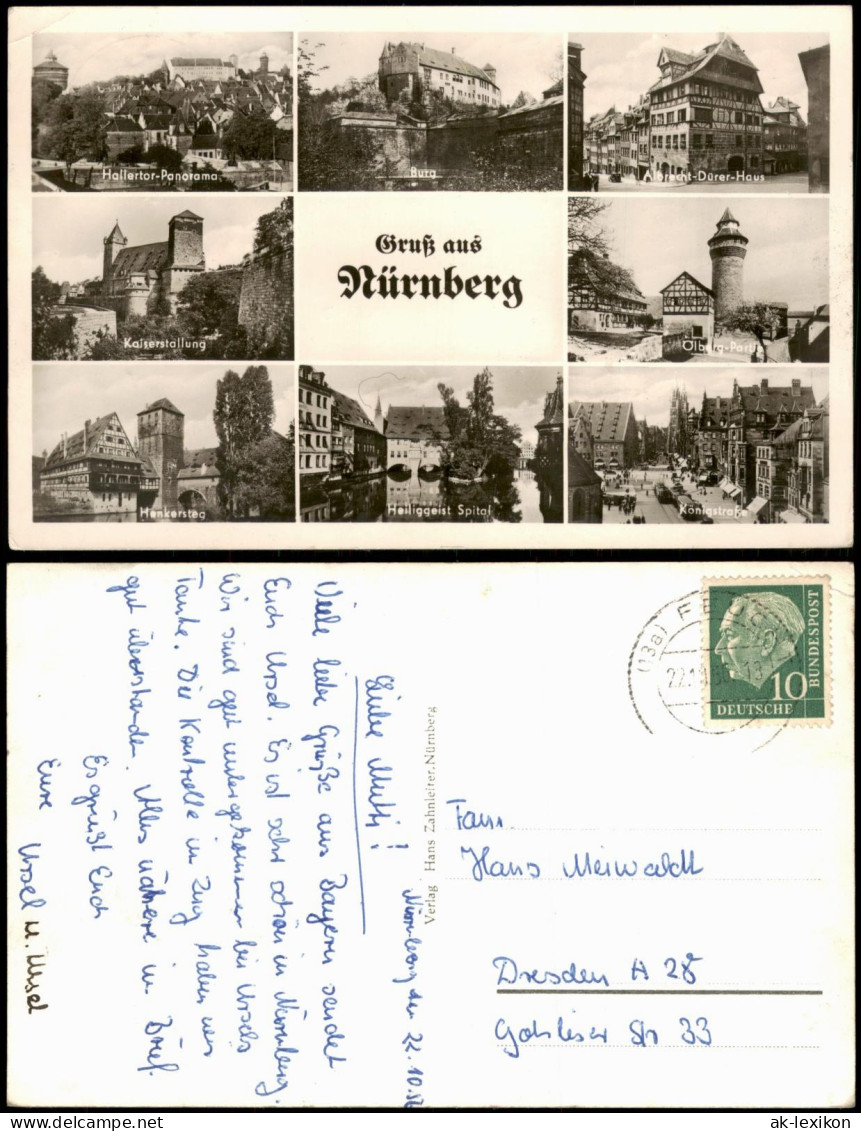 Hallertor-Panorama
Burg
Albrecht-Dürer-Haus
Kaiserstallung
Gruß aus
Nürnberg
Ölberg-Partie
Henkersteg
Heiliggeist Spital
Königstraße
Nürnberg den 22.10.56
Liebe Mutti!
Viele liebe Grüße aus Bayern sendet
Euch Ursel. Es ist sehr schön in Nürnberg.
Wir sind gut untergekommen bei Ursels
Tante. Die Kontrolle im Zug haben wir
gut überstanden. Alles nähere im Brief.
Es grüßt Euch
Eure Ursel u. Ursel
Verlag Hans Zahnleiter, Nürnberg
(13a)
22.10.56
10
DEUTSCHE
BUNDESPOST
Fam.
Hans Meiwaldt
Dresden A 28
Gohliser Str 33
ak-lexikon